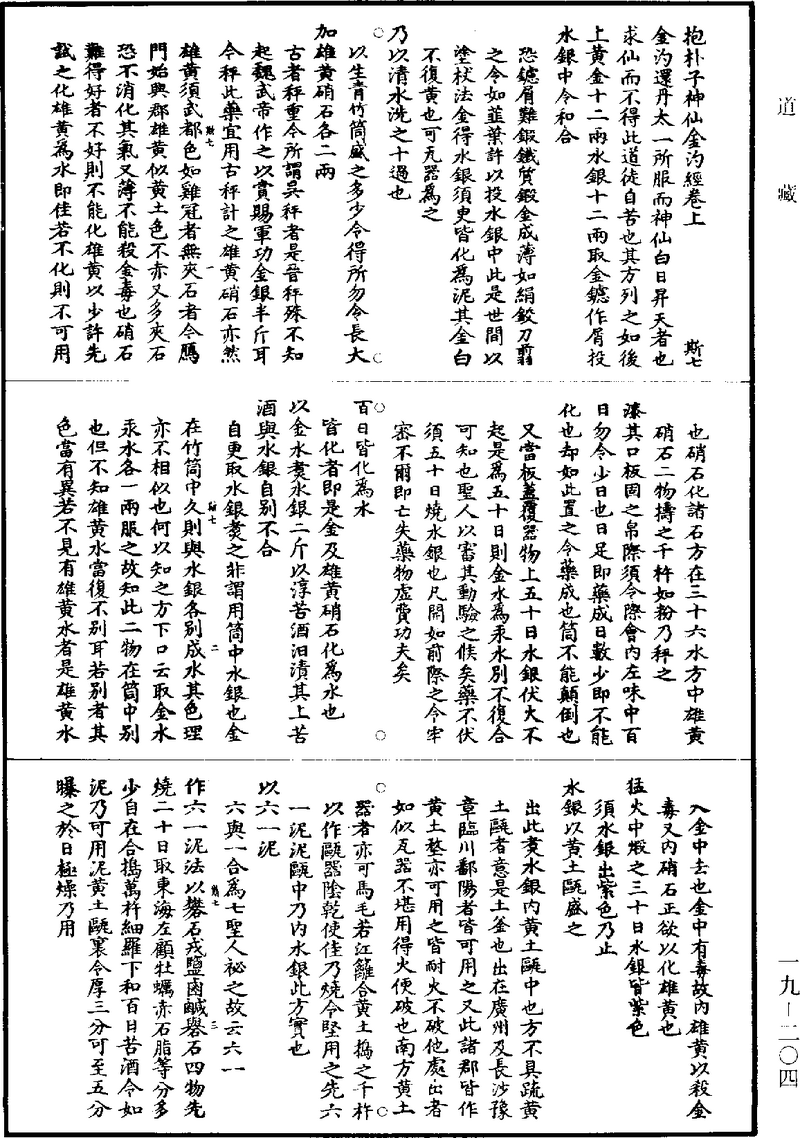 道藏
抱朴子神仙金汋經卷上
斯七
金汋還丹太一所服而神仙白日昇天者也
求仙而不得此道徒自苦也其方列之如後
上黃金十二兩水銀十二兩取金鑢作屑投
水銀中令和合
恐鑢屑難鍜鐵質鍜金成薄如絹鉸刀翦
之令如韮葉許以投水銀中此是世間以
塗杖法金得水銀須臾皆化為泥其金白
不復黃也可瓦器為之
乃以清水洗之十過也
以生青竹筒盛之多少令得所勿令長大
加雄黃硝石各二兩
古者秤重今所謂吳秤者是晉秤殊不知
起魏武帝作之以賞賜軍功金銀半斤耳
今秤此藥宜用古秤計之雄黃硝石亦然
斯七
一
雄黃須武都色如雞冠者無夾石者令鴈
門始興郡雄黃似黃土色不赤又多夾石
恐不消化其氣又薄不能殺金毒也硝石
難得好者不好則不能化雄黃以少許先
試之化雄黃為水即佳若不化則不可用
也硝石化諸石方在三十六水方中雄黃
硝石二物擣之千杵如粉乃秤之
漆其口板固之帛際須令際會內左味中百
日勿令少日也日足即藥成日數少即不能
化也却如此置之令藥成也筒不能顛倒也
又當板蓋覆器物上五十日水銀伏火不
起是為五十日則金水為汞水別不復合
可知也聖人以審其動驗之候矣藥不伏
須五十日燒水銀也凡開如前際之令牢
密不爾即亡失藥物虛費功夫矣
百日皆化為水
皆化者即是金及雄黃硝石化為水也
以金水煑水銀二斤以淳苦酒汩漬其上苦
酒與水銀自別不合
自更取水銀煑之非謂用筒中水銀也金
斯七
二
在竹筒中久則與水銀各別成水其色理
亦不相似也何以知之方下口云取金水
汞水各一兩服之故知此二物在筒中別
也但不知雄黃水當復不別耳若別者其
色當有異若不見有雄黃水者是雄黃水
入金中去也金中有毒故內雄黃以殺金
毒又內硝石正欲以化雄黃也
猛火中煅之三十日水銀皆紫色
須水銀出紫色乃止
水銀以黃土甌盛之
出此煑水銀內黃土甌中也方不具疏黃
土甌者意是土釜也出在廣州及長沙豫
章臨川鄱陽者皆可用之又此諸郡皆作
黃土墼亦可用之皆耐火不破他處出者
如似瓦器不堪用得火便破也南方黃土
器者亦可馬毛若江籬合黃土搗之千杵
以作甌器陰乾使佳乃燒令堅用之先六
一泥泥甌中乃內水銀此方實也
以六一泥
六與一合為七聖人祕之故云六一
斯七
三
作六一泥法以礬石戎鹽鹵鹹礜石四物先
燒二十日取東海左顧牡蠣赤石脂等分多
少自在合搗萬杵細羅下和百日苦酒令如
泥乃可用泥黃土甌裏令厚三分可至五分
曝之於日極燥乃用
一九—二〇四